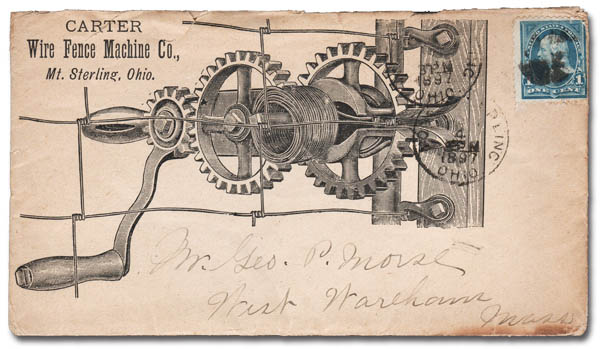 CARTER
Wire Fence Machine Co.,
Mt. Sterling, Ohio.
ONE CENT
1
1897
OHIO
1897
OHIO
Mr. Geo. P. Morse
West Wareham
Mass